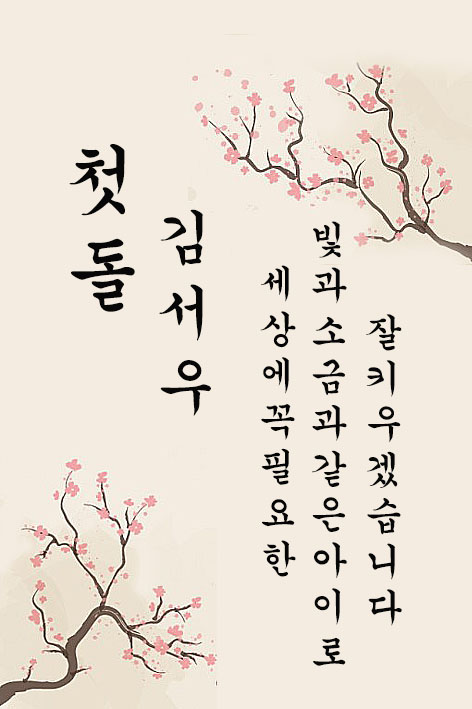 첫돌
김서우
세상에꼭필요한
빛과소금과같은아이로
잘키우겠습니다